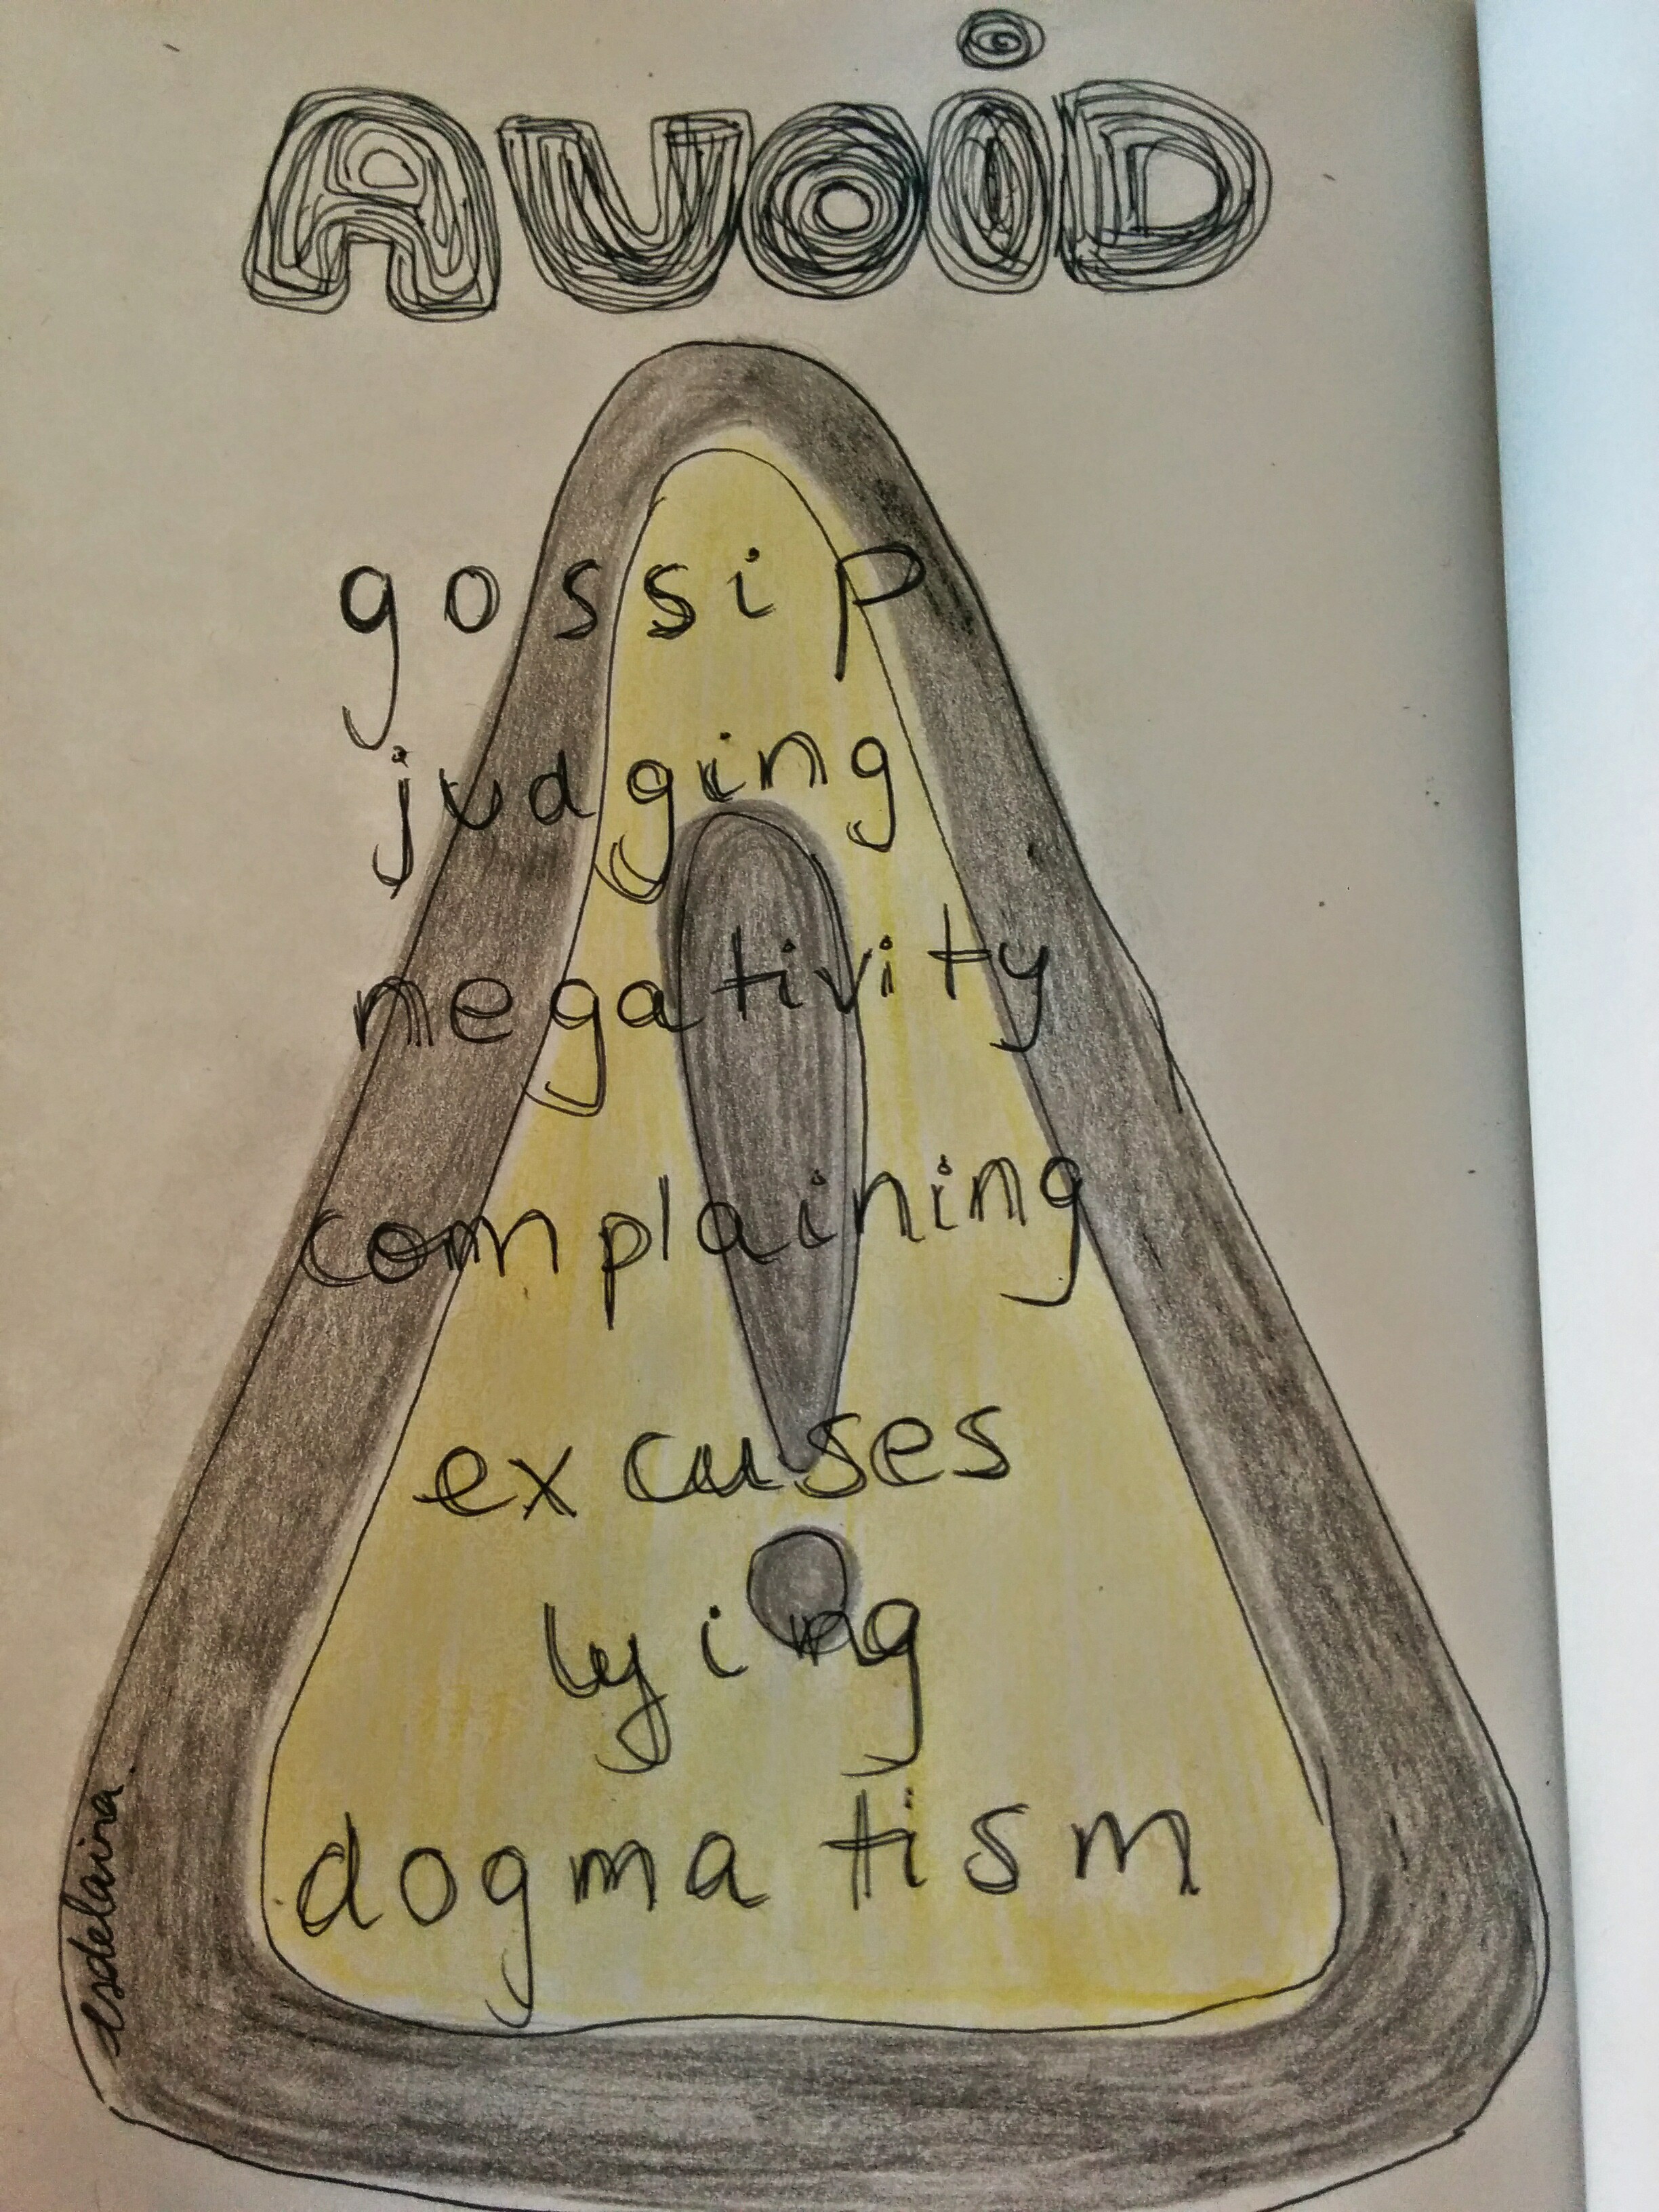 AVOiD
gossip
judging
negativity
complaining
excuses
lying
dogmatism
esdelaina